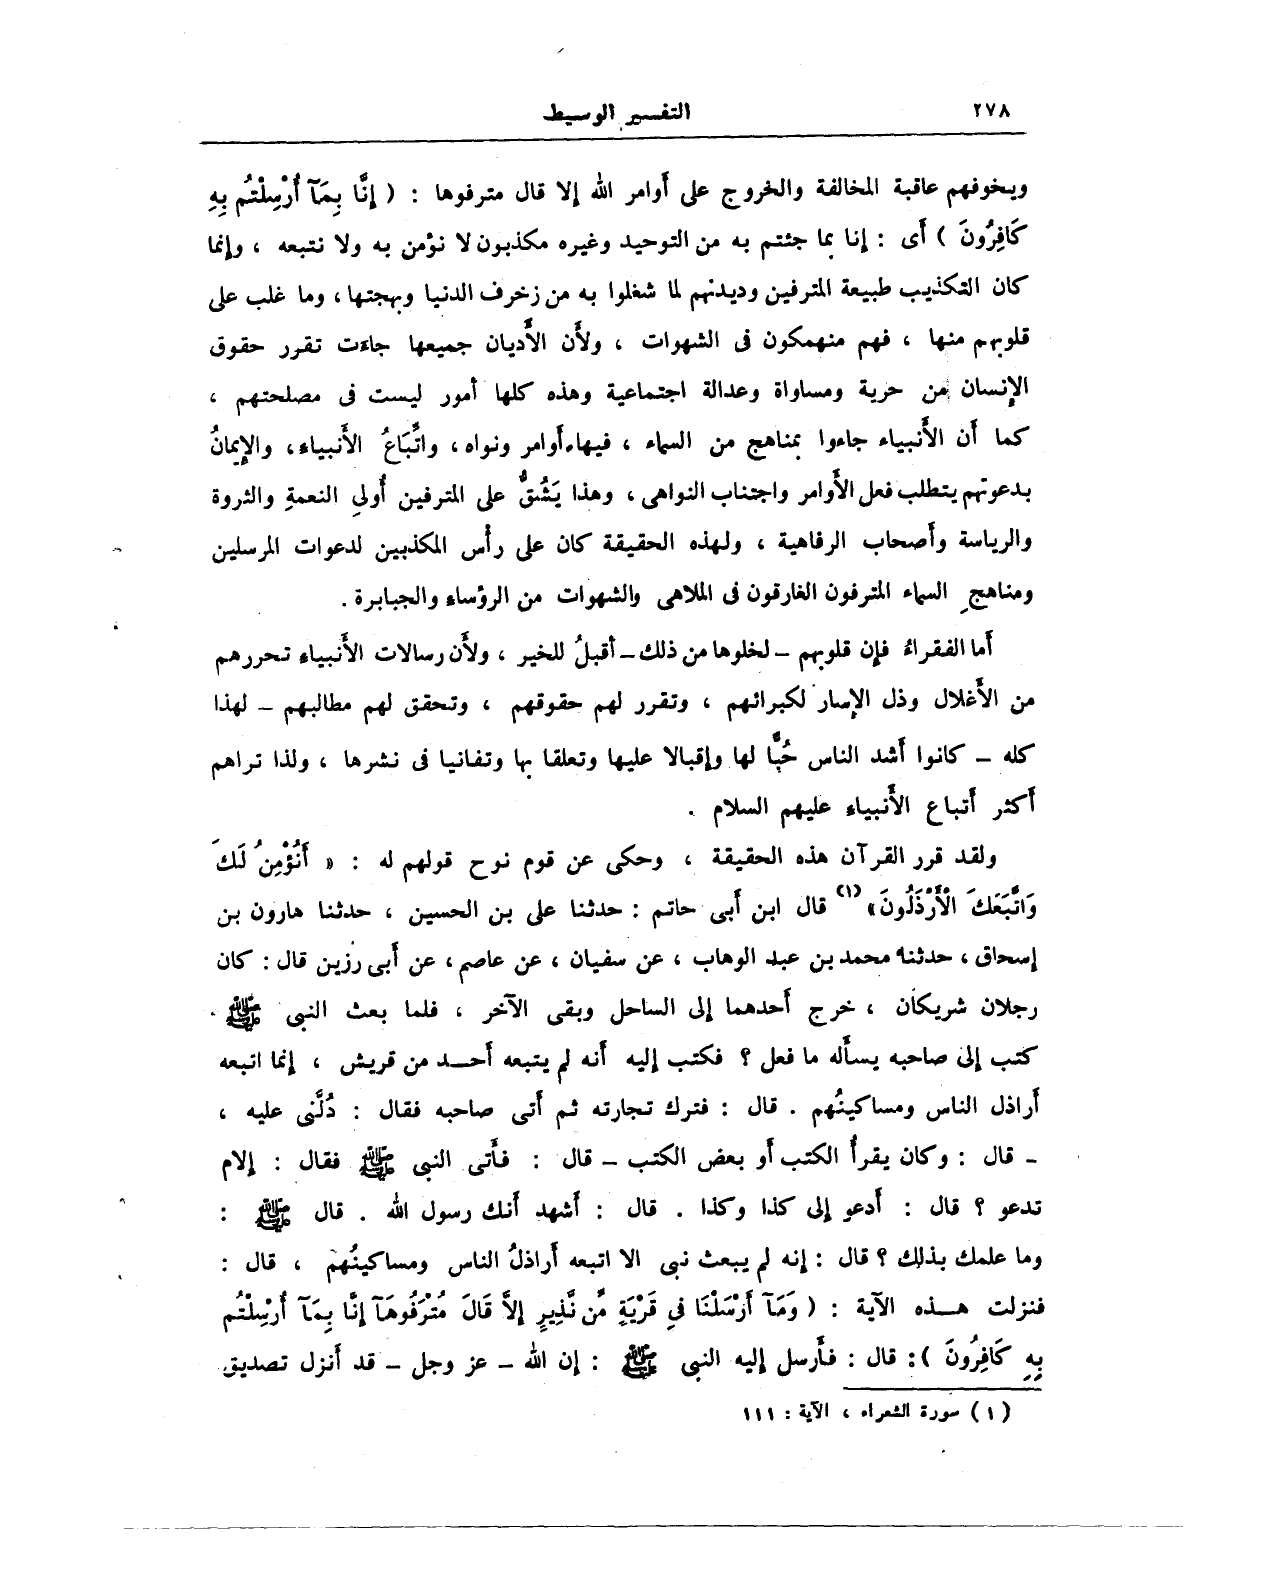 ٢٧٨
التفسير الوسيط
ويخوفهم عاقبة المخالفة والخروج على أوامر الله إلا قال مترفوها : ( إِنَّا بِمَآ أُرْسِلْتُم بِهِ
كَافِرُونَ ) أى : إنا بما جئتم به من التوحيد وغيره مكذبون لا نؤمن به ولا نتبعه ، وإنما
كان التكذيب طبيعة المترفين وديدنهم لما شغلوا به من زخرف الدنيا وبهجتها ، وما غلب على
قلوبهم منها ، فهم منهمكون فى الشهوات ، ولأن الأديان جميعها جاءت تقرر حقوق
الإنسان من حرية ومساواة وعدالة اجتماعية وهذه كلها أمور ليست فى مصلحتهم ،
كما أن الأنبياء جاءوا بمناهج من السماء ، فيها أوامر ونواه ، واتِّبَاعُ الأنبياء ، والإيمانُ
بدعوتهم يتطلب فعل الأوامر واجتناب النواهى ، وهذا يَشُقُّ على المترفين أُولىِ النعمةِ والثروة
والرياسة وأصحاب الرفاهية ، ولهذه الحقيقة كان على رأس المكذبين لدعوات المرسلين
ومناهجِ السماء المترفون الغارقون فى الملاهى والشهوات من الرؤساء والجبابرة .
أما الفقراءُ فإن قلوبهم – لخلوها من ذلك – أقبلُ للخير ، ولأن رسالات الأنبياء تحررهم
من الأغلال وذل الإسار لكبرائهم ، وتقرر لهم حقوقهم ، وتحقق لهم مطالبهم – لهذا
كله – كانوا أشد الناس حُبًّا لها وإقبالا عليها وتعلقا بها وتفانيا فى نشرها ، ولذا تراهم
أكثر أتباع الأنبياء عليهم السلام .
ولقد قرر القرآن هذه الحقيقة ، وحكى عن قوم نوح قولهم له : « أَنُؤْمِنُ لَكَ
وَاتَّبَعَكَ الْأَرْذَلُونَ» (١) قال ابن أبى حاتم : حدثنا على بن الحسين ، حدثنا هارون بن
إسحاق ، حدثنا محمد بن عبد الوهاب ، عن سفيان ، عن عاصم ، عن أبى رزين قال : كان
رجلان شريكان ، خرج أحدهما إلى الساحل وبقى الآخر ، فلما بعث النبى ﷺ
كتب إلى صاحبه يسأله ما فعل ؟ فكتب إليه أنه لم يتبعه أحد من قريش ، إنما اتبعه
أراذل الناس ومساكينُهم . قال : فترك تجارته ثم أتى صاحبه فقال : دُلَّنى عليه ،
– قال : وكان يقرأُ الكتب أو بعض الكتب – قال : فأتى النبى ﷺ فقال : إلام
تدعو ؟ قال : أدعو إلى كذا وكذا . قال : أشهد أنك رسول الله . قال ﷺ :
وما علمك بذلك ؟ قال : إنه لم يبعث نبى الا اتبعه أراذلُ الناس ومساكينُهم ، قال :
فنزلت هذه الآية : ( وَمَآ أَرْسَلْنَا فِى قَرْيَةٍ مِّن نَّذِيرٍ إِلاَّ قَالَ مُتْرَفُوهَآ إِنَّا بِمَآ أُرْسِلْتُم
بِهِ كَافِرُونَ ): قال : فأرسل إليه النبى ﷺ : إن الله – عز وجل – قد أنزل تصديق
(١) سورة الشعراء ، الآية : ١١١